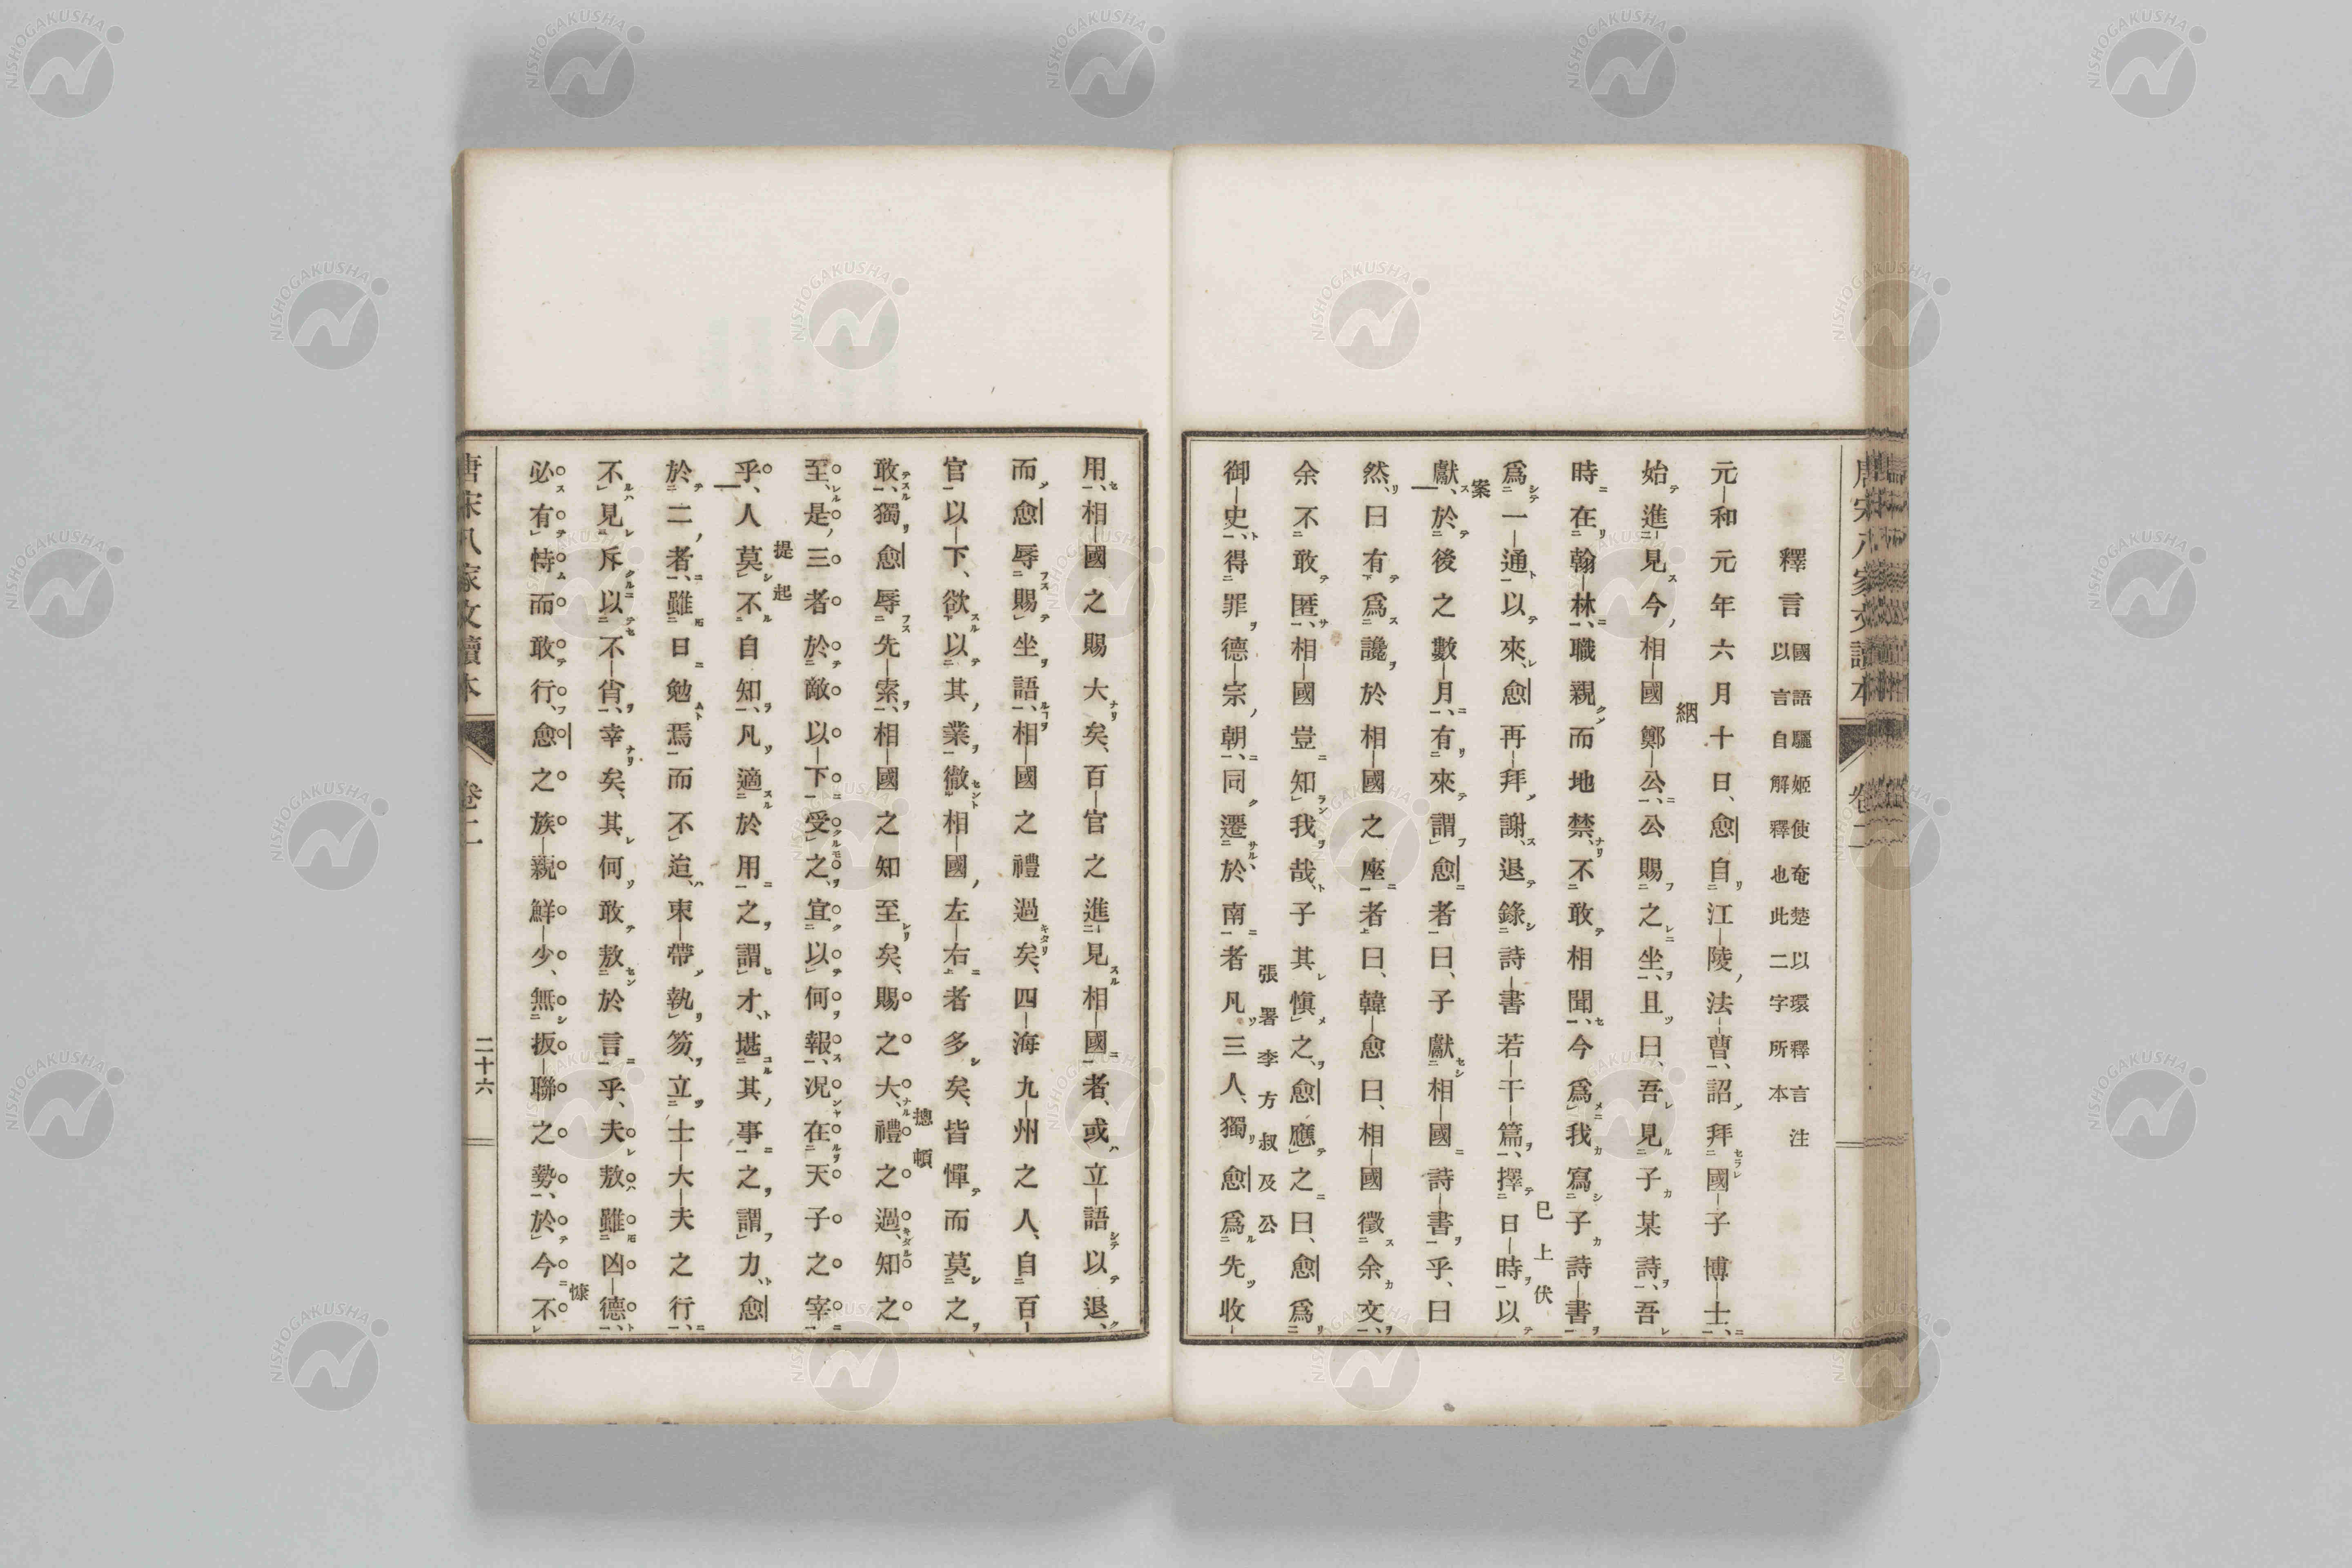 釋言 國語驪姬使奄楚以環釋言注
以言自解釋也此二字所本
元和元年六月十日、愈自江陵法曹、詔拜國子博士、
始進見今相國鄭公、公賜之坐、且曰、吾見子某詩、吾
絪
時在翰林、職親而地禁、不敢相聞、今爲我寫子詩書
爲一通以來、愈再拜謝、退錄詩書若干篇、擇日時以
巳上伏
案
獻、於後之數月、有來謂愈者曰、子獻相國詩書乎、曰
然、曰有爲讒於相國之座者曰、韓愈曰、相國徵余文、
余不敢匿、相國豈知我哉、子其愼之、愈應之曰、愈爲
張署李方叔及公
御史、得罪德宗朝、同遷於南者凡三人、獨愈爲先收
用、相國之賜大矣、百官之進見相國者、或立語以退、
而愈辱賜坐語、相國之禮過矣、四海九州之人、自百
官以下、欲以其業徹相國左右者多矣、皆憚而莫之
敢、獨愈辱先索、相國之知至矣、賜之大、禮之過、知之
摠頓
至、是三者於敵以下受之、宜以何報、况在天子之宰
乎、人莫不自知、凡適於用之謂才、堪其事之謂力、愈
提起
於二者、雖日勉焉而不迨、束帶執笏、立士大夫之行、
不見斥以不肖、幸矣、其何敢敖於言乎、夫敖雖凶德、
必有恃而敢行、愈之族親鮮少、無扳聯之勢、於今不
慷
唐宋八家文讀本
卷二
二十六